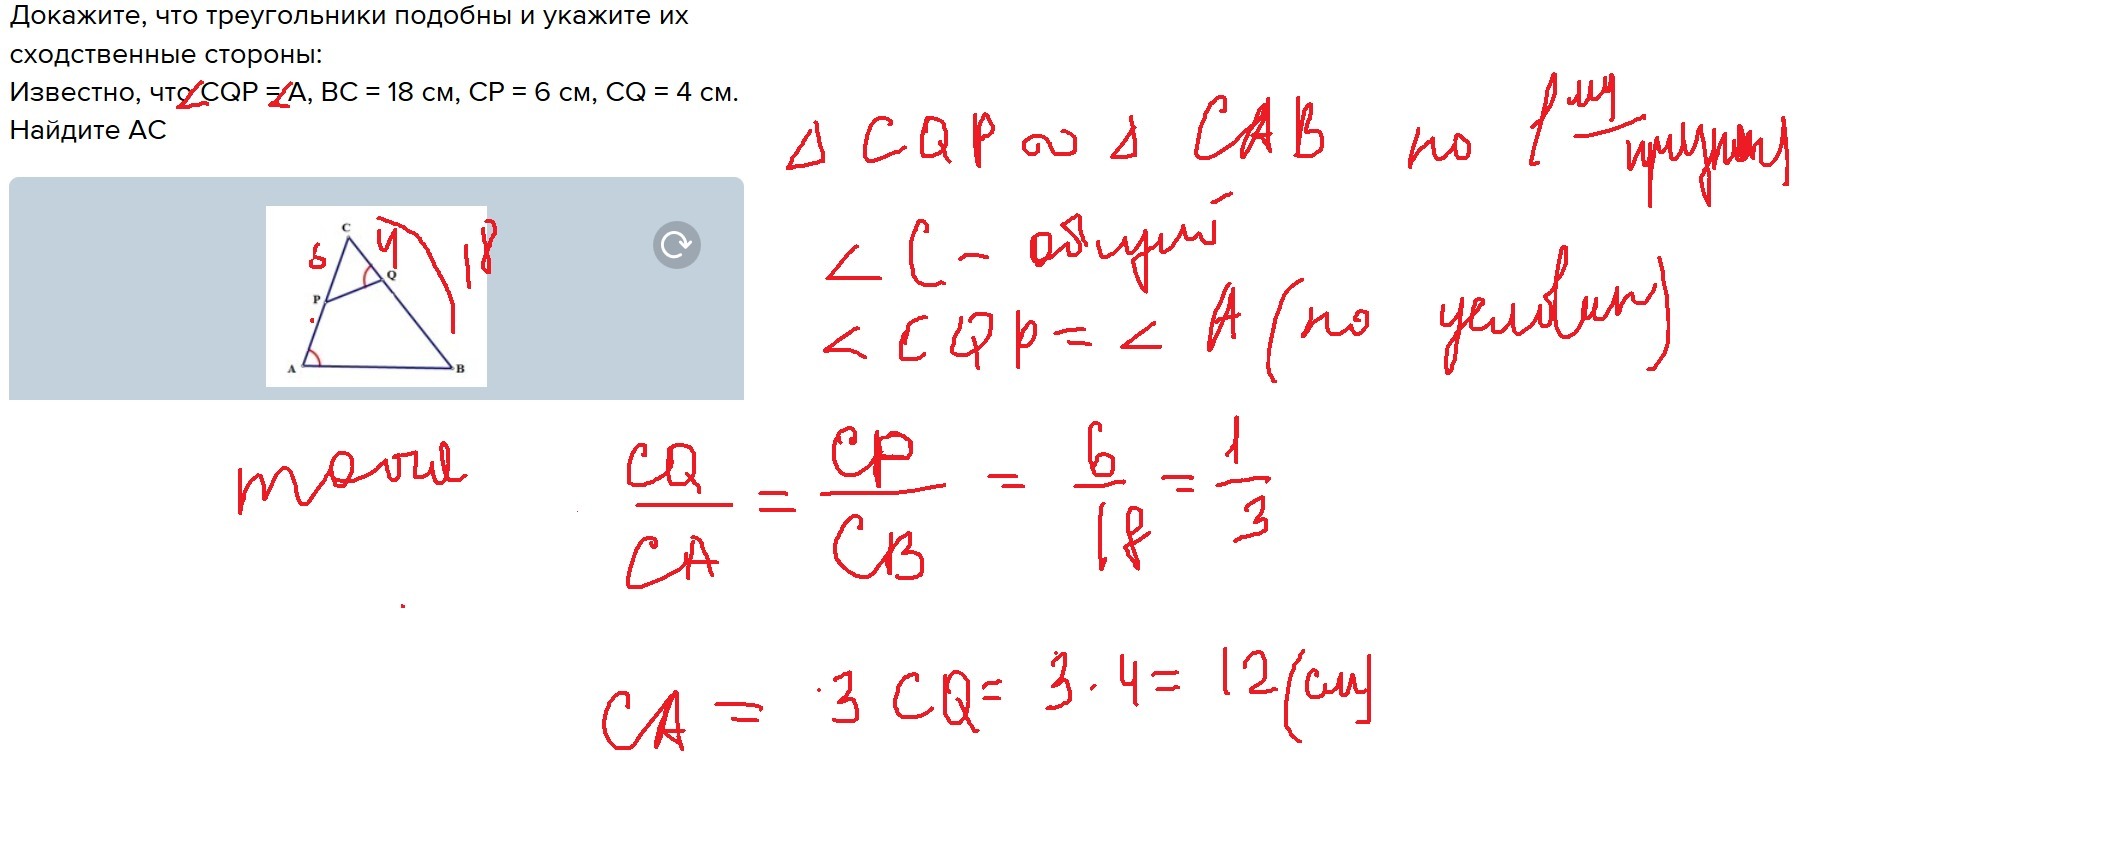 Докажите, что треугольники подобны и укажите их
сходственные стороны:
Известно, что ∠CQP = ∠A, BC = 18 см, CP = 6 см, CQ = 4 см.
Найдите AC
C
6
4
18
Q
P
A
B
Δ CQP ∞ Δ CAB по 1му признаку
< C - общий
< CQP = < A (по условию)
CQ/CA = CP/CB = 6/18 = 1/3
CA = 3 CQ = 3 · 4 = 12 (см)